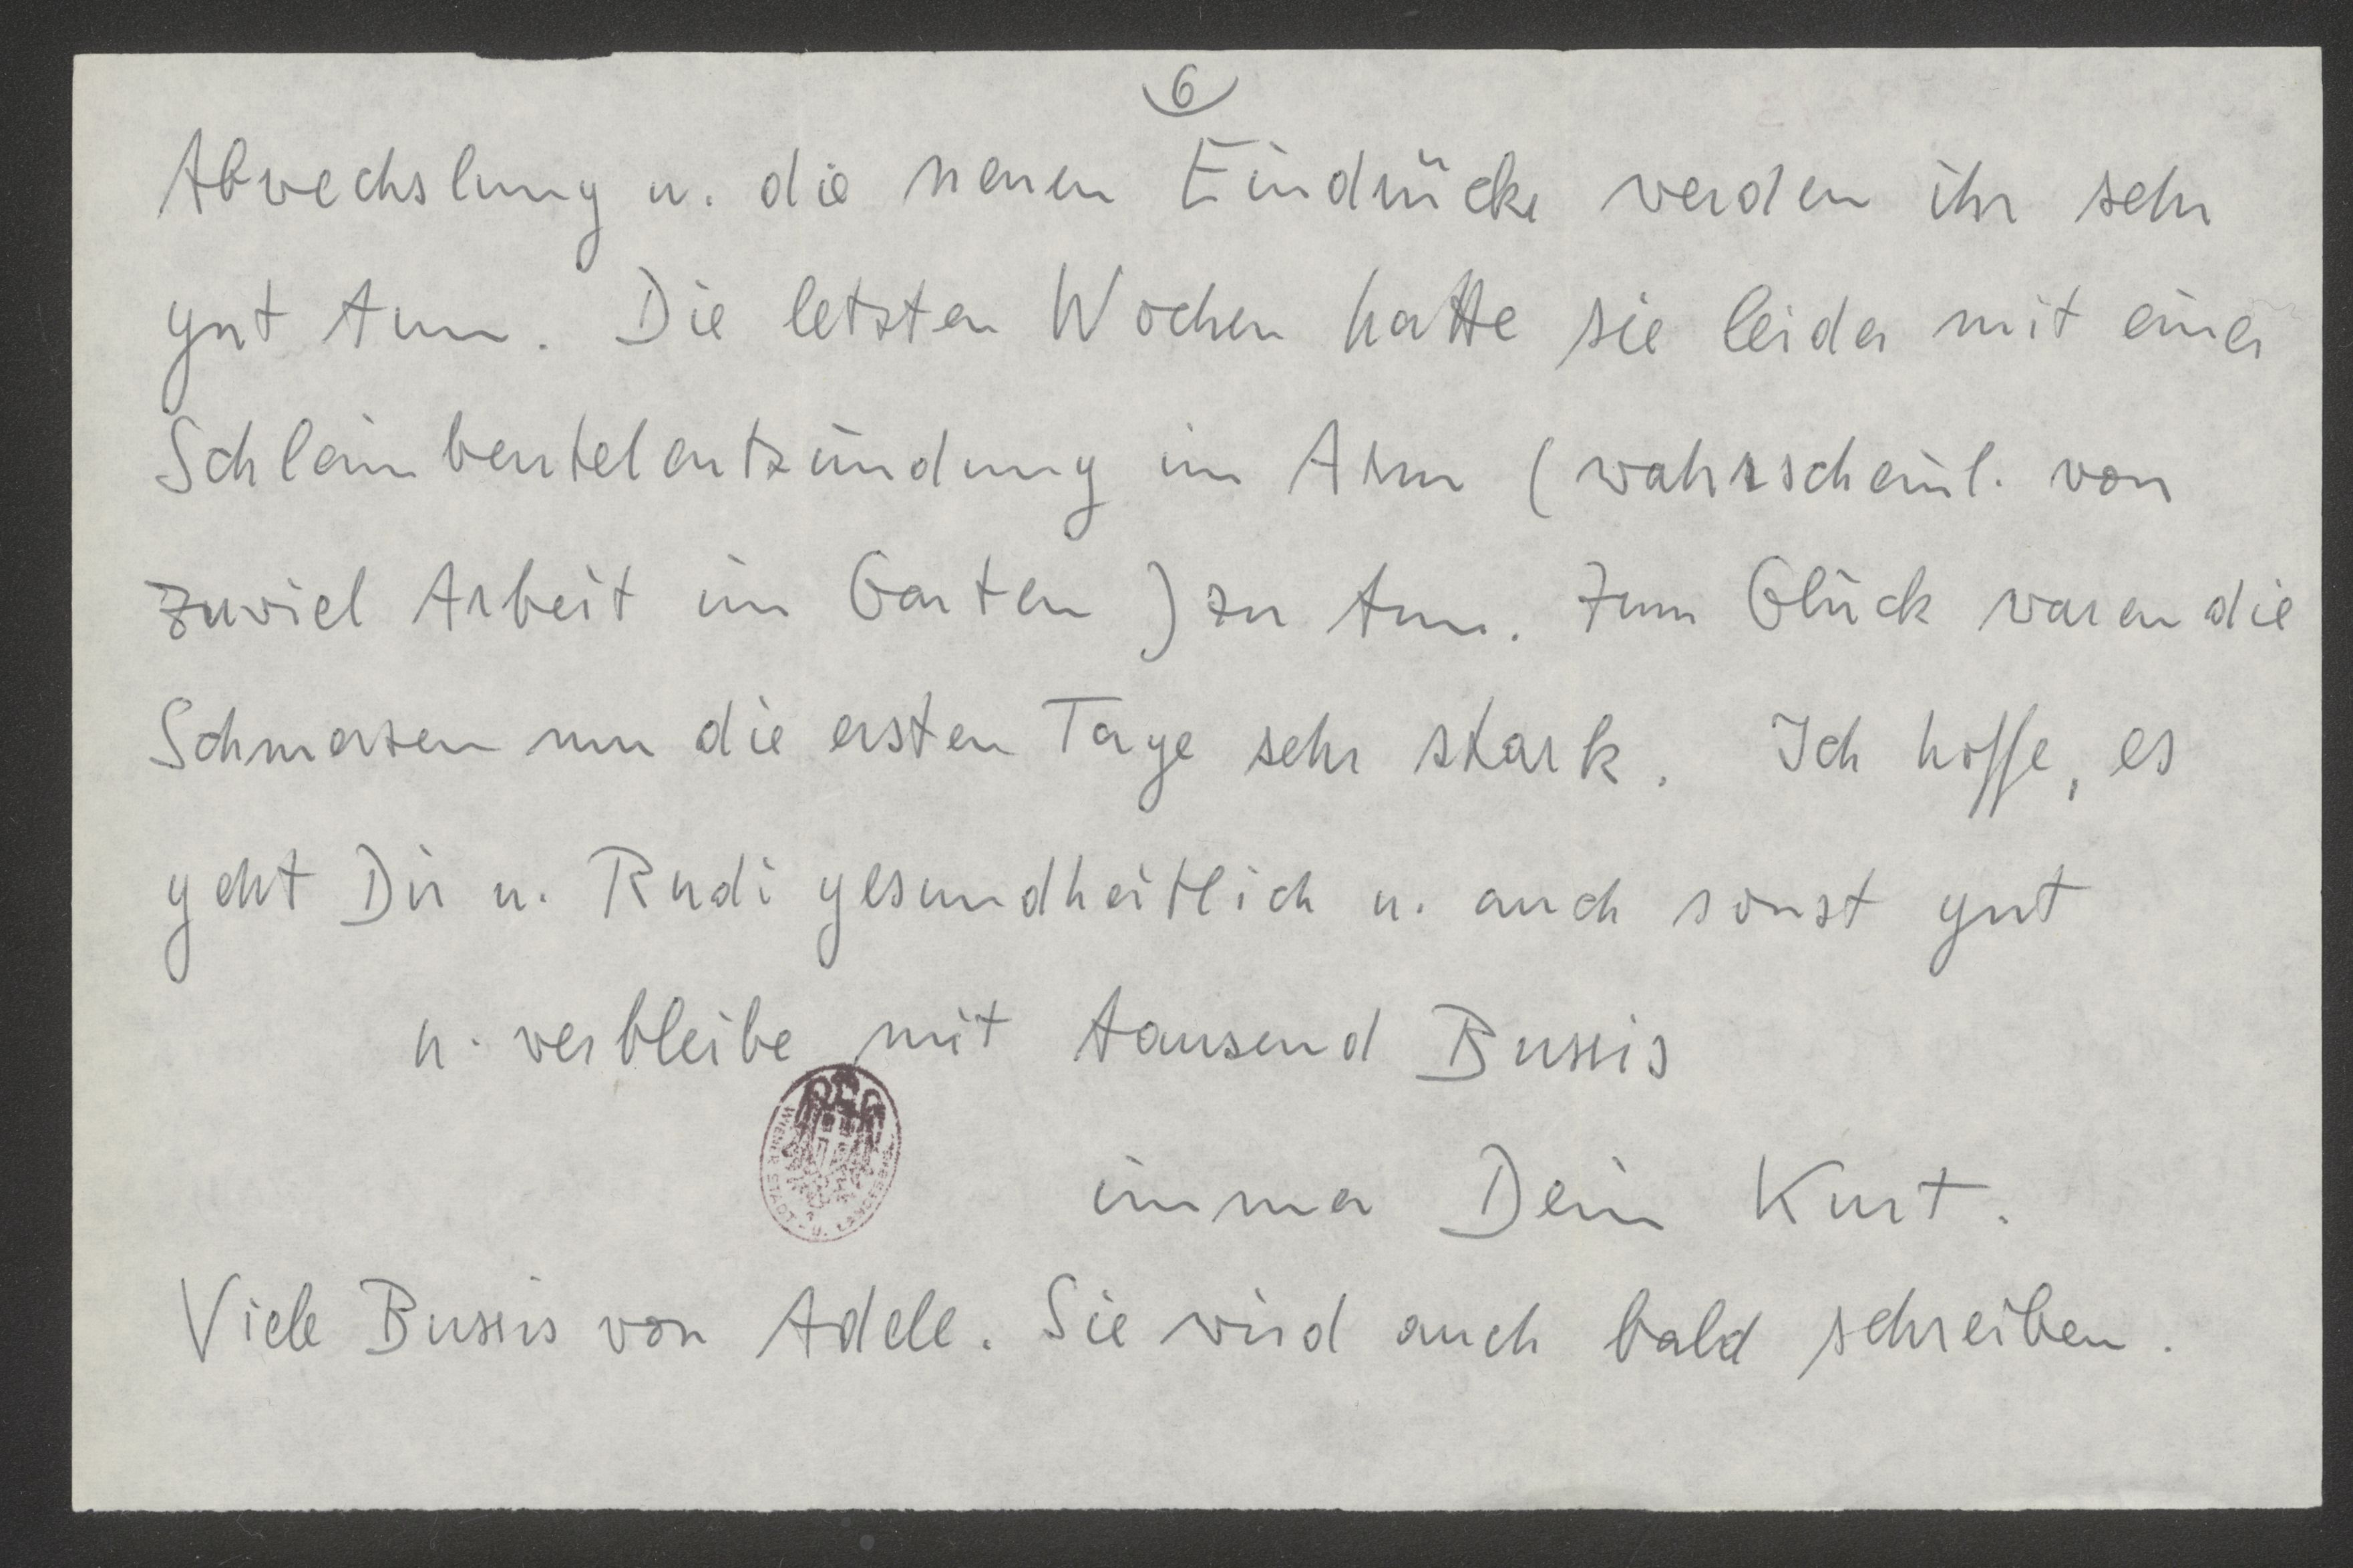 6
Abwechslung u. die neuen Eindrücke werden ihr sehr
gut tun. Die letzten Wochen hatte sie leider mit einer
Schleimbeutelentzündung im Arm (wahrscheinl. von
zuviel Arbeit im Garten) zu tun. Zum Glück waren die
Schmerzen nur die ersten Tage sehr stark. Ich hoffe, es
geht Dir u. Rudi gesundheitlich u. auch sonst gut
u. verbleibe mit tausend Bussis
WIENER STADT- U. LANDES
immer Dein Kurt.
Viele Bussis von Adele. Sie wird auch bald schreiben.